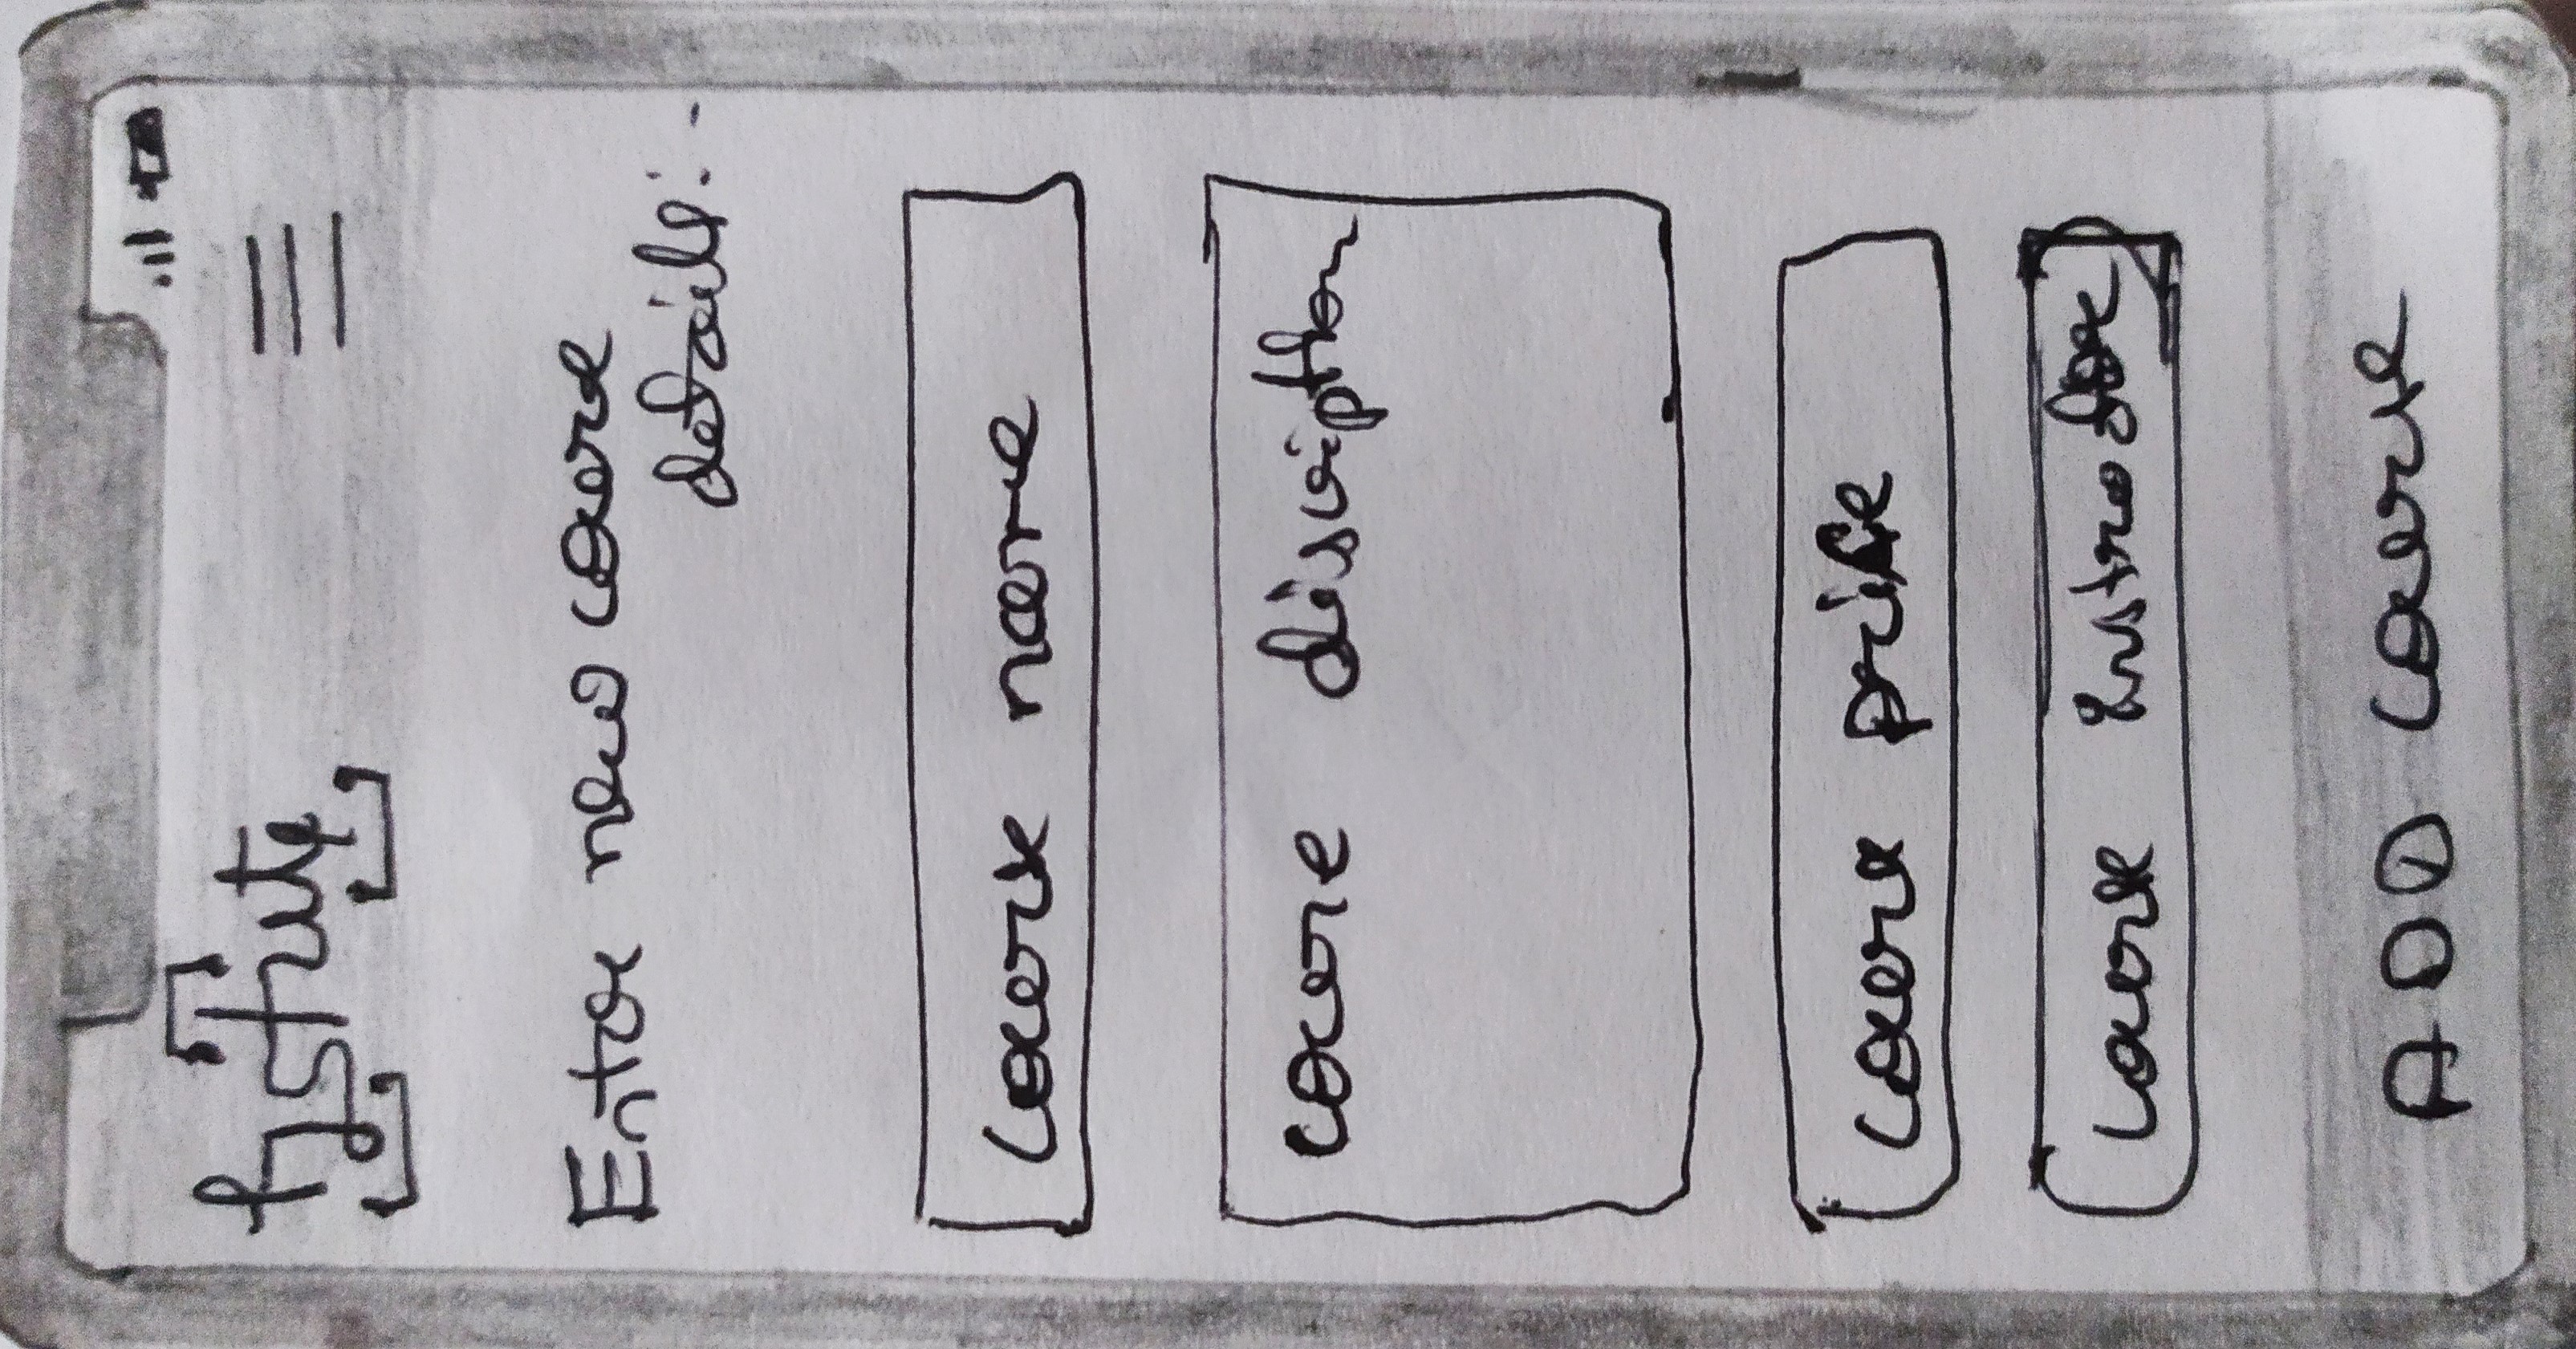 Enter new course
details:-
Course name
course discription
Course price
Course
ADD Course